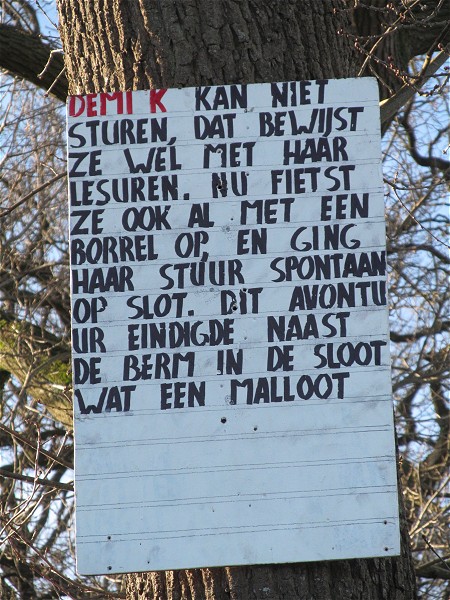 DEMI K KAN NIET
STUREN, DAT BEWIJST
ZE WEL MET HAAR
LESUREN. NU FIETST
ZE OOK AL MET EEN
BORREL OP, EN GING
HAAR STUUR SPONTAAN
OP SLOT. DIT AVONTU
UR EINDIGDE NAAST
DE BERM IN DE SLOOT
WAT EEN MALLOOT